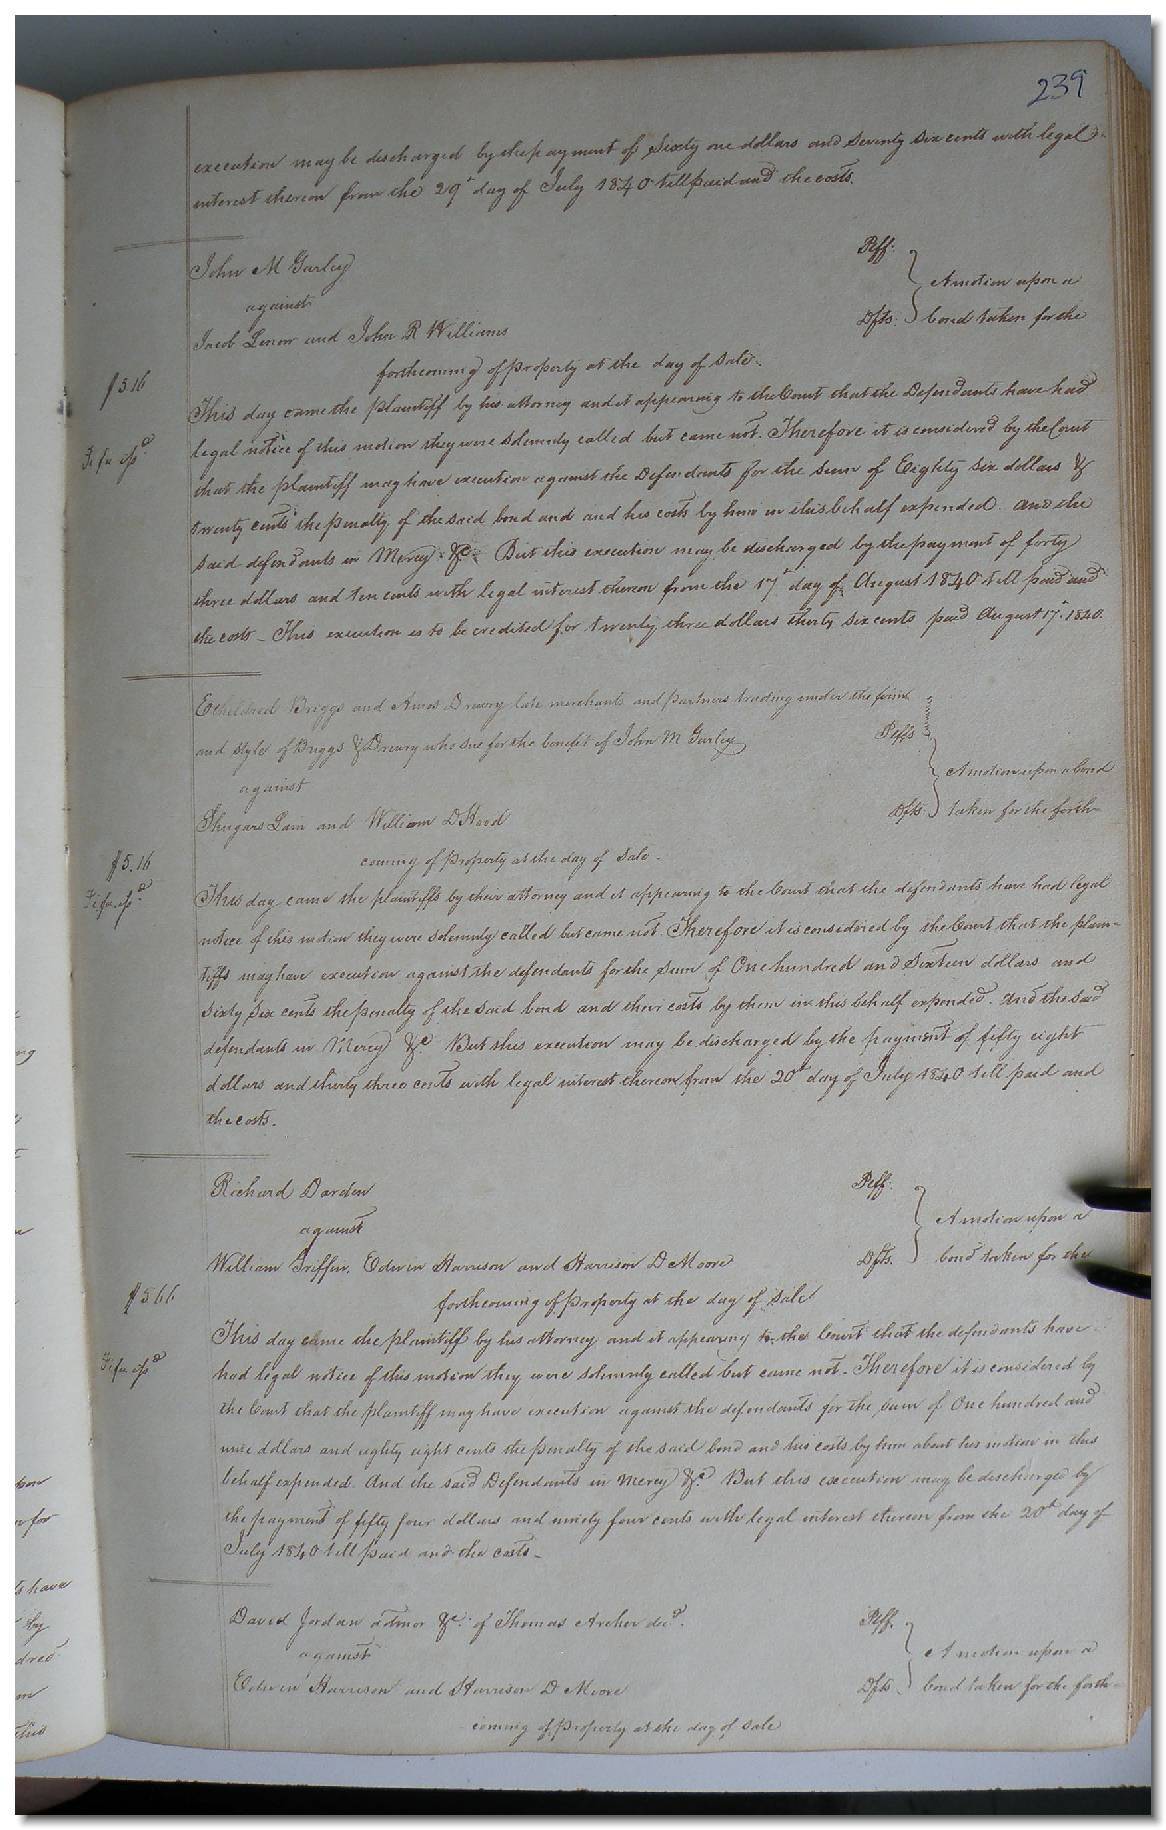 239
execution may be discharged by the payment of Sixty one dollars and Seventy Six cents with legal
interest thereon from the 29t day of July 1840 till paid and the costs.
John M Gurley Plff.
against A motion upon a
Jacob Lenow and John R Williams Dfts. bond taken for the
forthcoming of property at the day of Sale.
$5.16
This day came the plaintiff by his attorney and it appearing to the Court that the Defendants have had
legal notice of this motion they were Solemnly called but came not. Therefore it is considered by the Court
Fi fa ipd
that the plaintiff may have execution against the Defendants for the Sum of Eighty Six dollars &
twenty cents the penalty of the said bond and and his costs by him in this behalf expended. and the
said defendants in Mercy &c. But this execution may be discharged by the payment of forty
three dollars and ten cents with legal interest thereon from the 17t day of August 1840 till paid and
the costs - This execution is to be credited for twenty three dollars thirty Six cents paid August 17t 1840.
Etheldred Briggs and Amos Dreury late merchants and partners trading under the firm
and style of Briggs & Dreury who sue for the benefit of John M Gurley Plffs
against A motion upon a bond
Shugars Lain and William D Hood Dfts. taken for the forth-
coming of property at the day of Sale.
$5.16
Fi fa ipd
This day came the plaintiffs by their attorney and it appearing to the Court that the defendants have had legal
notice of this motion they were Solemnly called but came not. Therefore it is considered by the Court that the plain-
tiffs may have execution against the defendants for the Sum of One hundred and Sixteen dollars and
Sixty Six cents the penalty of the said bond and their costs by them in this behalf expended. And the said
defendants in Mercy &c. But this execution may be discharged by the payment of fifty eight
dollars and thirty three cents with legal interest thereon from the 20t day of July 1840 till paid and
the costs.
Richard Darden Plff.
against A motion upon a
William Griffin, Edwin Harrison and Harrison D Moore Dfts. bond taken for the
forthcoming of property at the day of Sale
$5.66
This day came the plaintiff by his attorney and it appearing to the Court that the defendants have
Fi fa ipd
had legal notice of this motion they were Solemnly called but came not. Therefore it is considered by
the Court that the plaintiff may have execution against the defendants for the Sum of One hundred and
nine dollars and eighty eight cents the penalty of the said bond and his costs by him about his motion in this
behalf expended. And the said Defendants in mercy &c. But this execution may be discharged by
the payment of fifty four dollars and ninety four cents with legal interest thereon from the 20t day of
July 1840 till paid and the costs -
David Jordan admor &c. of Thomas Archer decd. Plff.
against A motion upon a
Edwin Harrison and Harrison D Moore Dfts. bond taken for the forth-
coming of property at the day of Sale